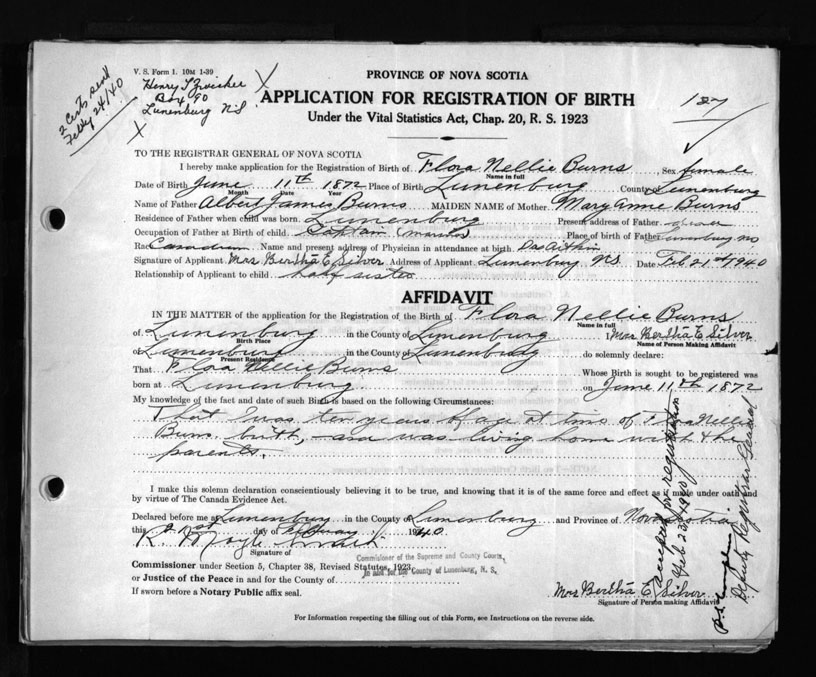 V. S. Form 1. 10M 1-39
Henry T Zwicker
Box 90
Lunenburg N.S.
2 Certs sent
Feb'y 24/40
PROVINCE OF NOVA SCOTIA
APPLICATION FOR REGISTRATION OF BIRTH
Under the Vital Statistics Act, Chap. 20, R. S. 1923
127
TO THE REGISTRAR GENERAL OF NOVA SCOTIA
I hereby make application for the Registration of Birth of Flora Nellie Burns Sex female
Name in full
Date of Birth June 11th 1872 Place of Birth Lunenburg County Lunenburg
Month Date Year
Name of Father Albert James Burns MAIDEN NAME of Mother Mary Anne Burns
Residence of Father when child was born. Lunenburg Present address of Father
Occupation of Father at Birth of child Captain (Marine) Place of birth of Father Lunenburg NS
Race Canadian Name and present address of Physician in attendance at birth Doc Aitkin
Signature of Applicant Mrs Bertha E Silver Address of Applicant Lunenburg NS Date Feb 21st 1940
Relationship of Applicant to child half sister
AFFIDAVIT
IN THE MATTER of the application for the Registration of the Birth of Flora Nellie Burns
Name in full
of Lunenburg in the County of Lunenburg Mrs Bertha E Silver
Birth Place Name of Person Making Affidavit
of Lunenburg in the County of Lunenburg do solemnly declare:
Present Residence
That Flora Nellie Burns Whose Birth is sought to be registered was
born at Lunenburg on June 11th 1872
My knowledge of the fact and date of such Birth is based on the following Circumstances:
That I was ten years of age at time of Flora Nellie
Burns birth, and was living home with the
parents.
I make this solemn declaration conscientiously believing it to be true, and knowing that it is of the same force and effect as if made under oath and
by virtue of The Canada Evidence Act.
Declared before me at Lunenburg in the County of Lunenburg and Province of Nova Scotia
this 21st day of February 1940
Signature of
Commissioner of the Supreme and County Courts,
in and for the County of Lunenburg, N. S.
Commissioner under Section 5, Chapter 38, Revised Statutes, 1923
or Justice of the Peace in and for the County of
If sworn before a Notary Public affix seal.
Mrs Bertha E Silver
Signature of Person making Affidavit
Accepted for registration
Feb 23rd 1940
Deputy Registrar General
For Information respecting the filling out of this Form, see Instructions on the reverse side.